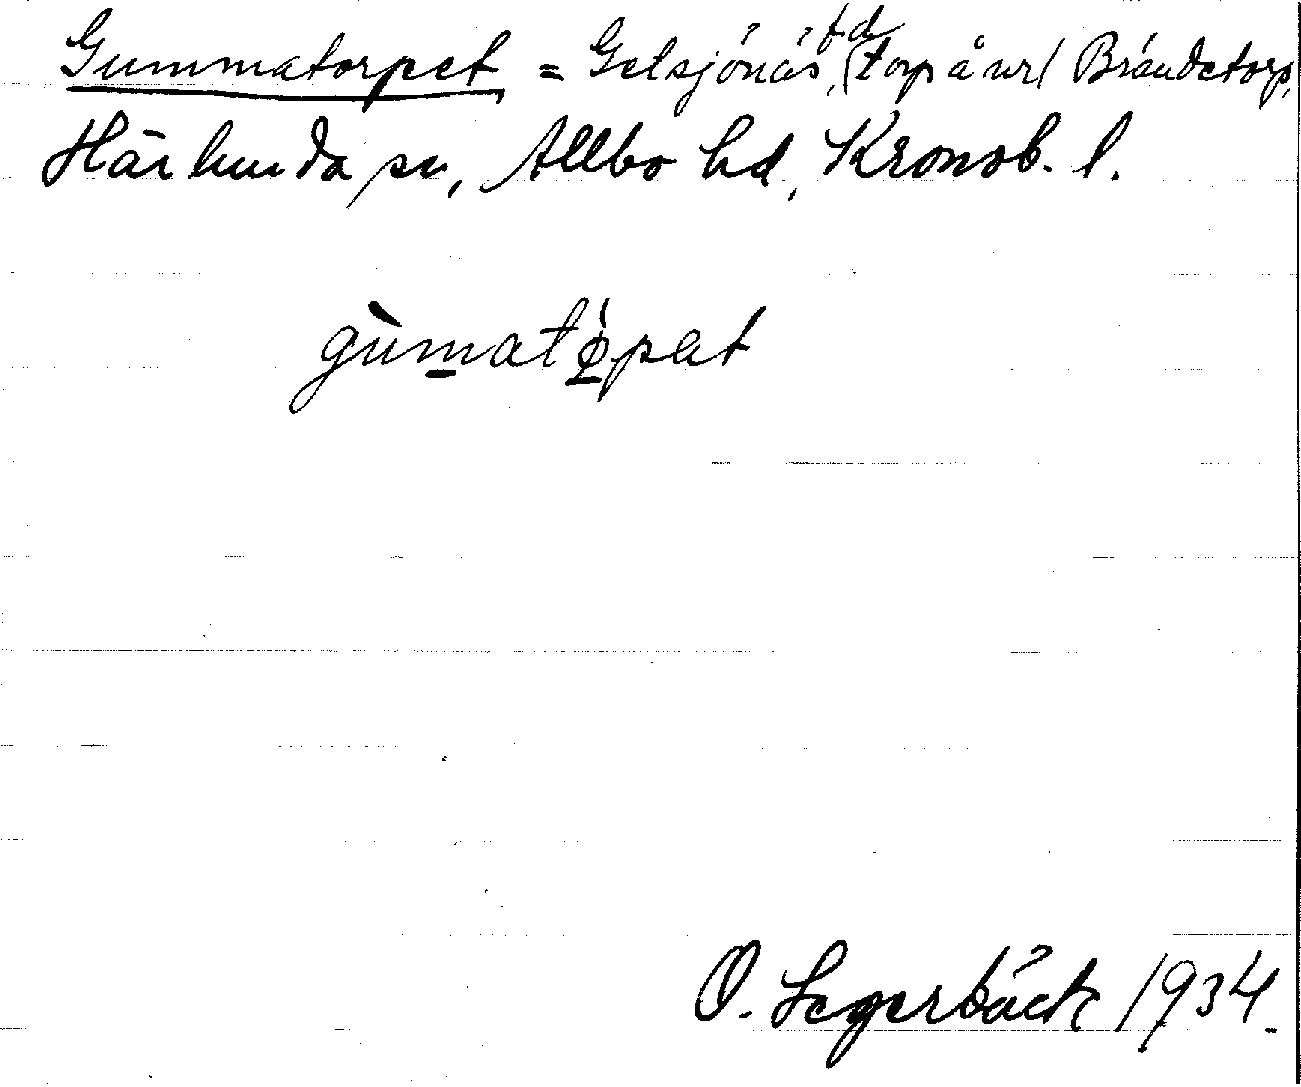 Gummatorpet = Gelsjönäs, f d (torp å urf Brändetorp,
Härlunda sn, Allbo hd, Kronob. l.
gùmatǫ́pat
O. Segerbäck 1934.